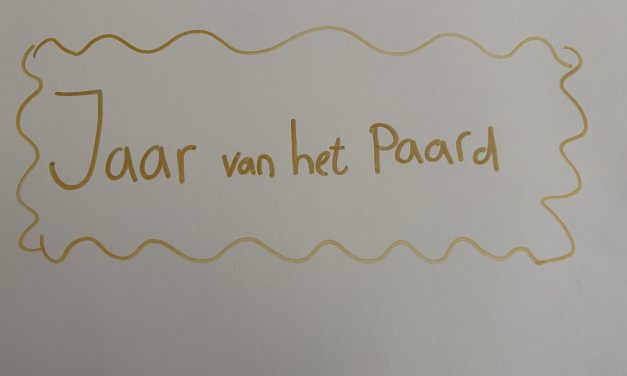 Jaar van het Paard